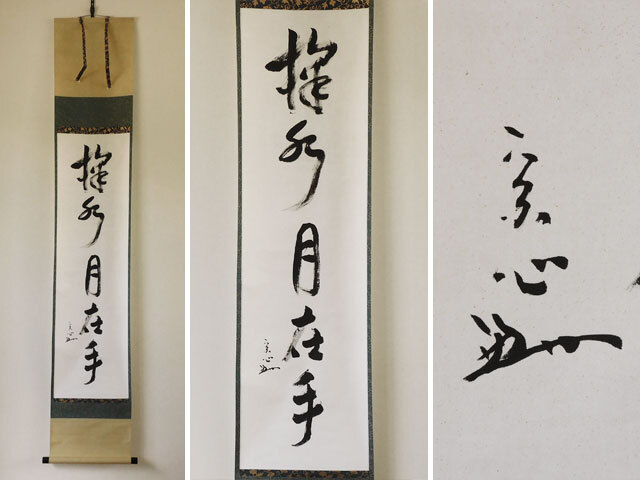 掬水月在手
心
掬水月在手
心
心